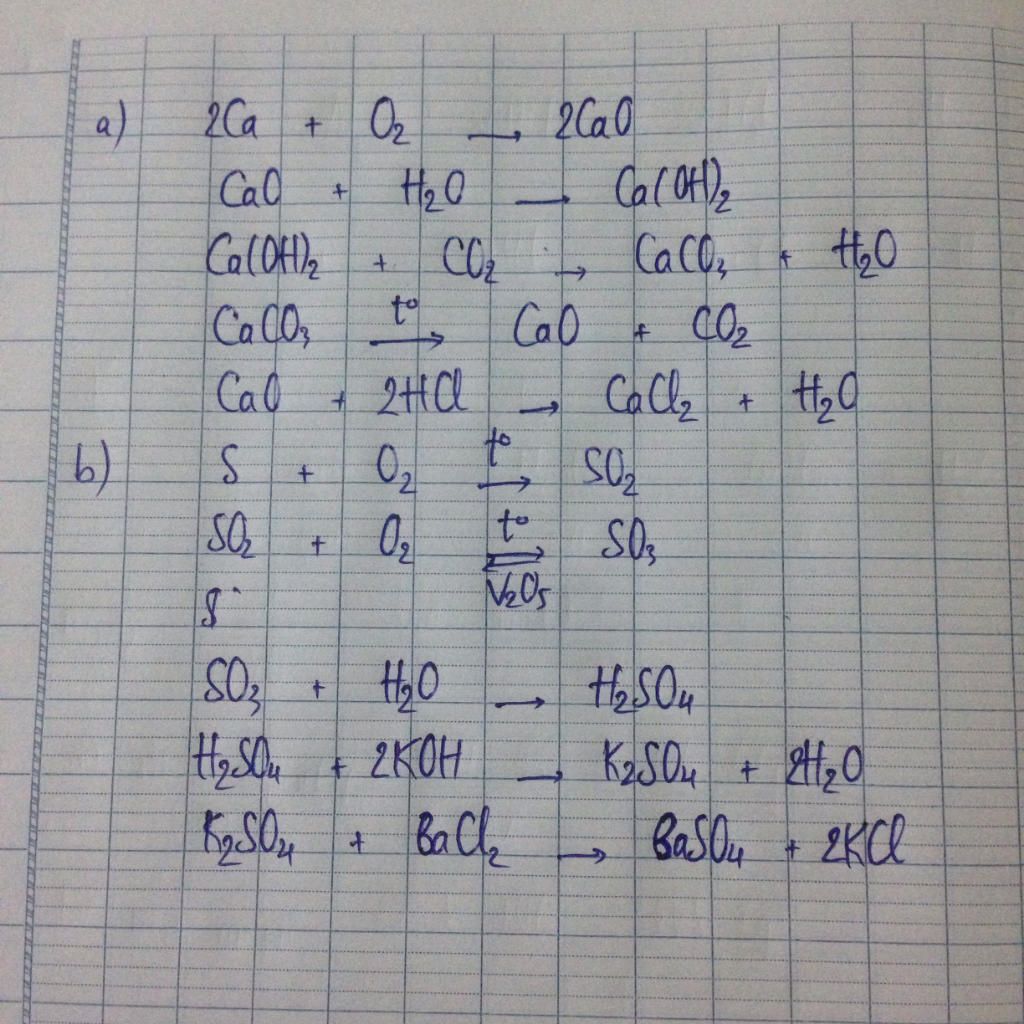 a) 2Ca + O₂ → 2CaO
CaO + H₂O → Ca(OH)₂
Ca(OH)₂ + CO₂ → CaCO₃ + H₂O
CaCO₃ t° → CaO + CO₂
CaO + 2HCl → CaCl₂ + H₂O
b) S + O₂ t° → SO₂
SO₂ + O₂ t° ⇌ V₂O₅ SO₃
S
SO₃ + H₂O → H₂SO₄
H₂SO₄ + 2KOH → K₂SO₄ + 2H₂O
K₂SO₄ + BaCl₂ → BaSO₄ + 2KCl